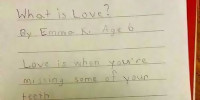 What is Love?
By Emma K. Age 6
Love is when you're
missing some of your
teeth